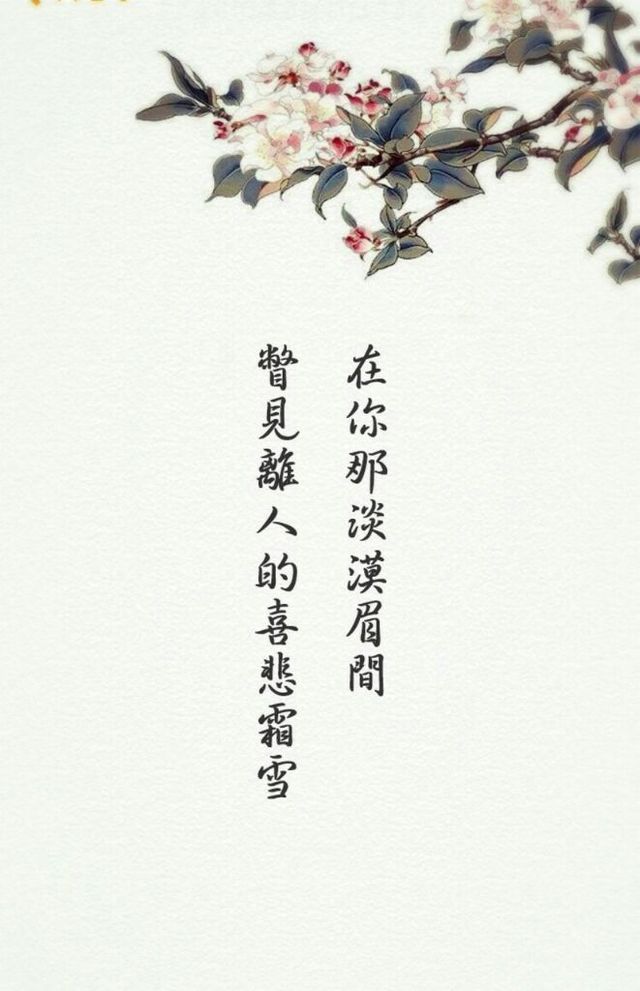 在你那淡漠眉間
瞥見離人的喜悲霜雪